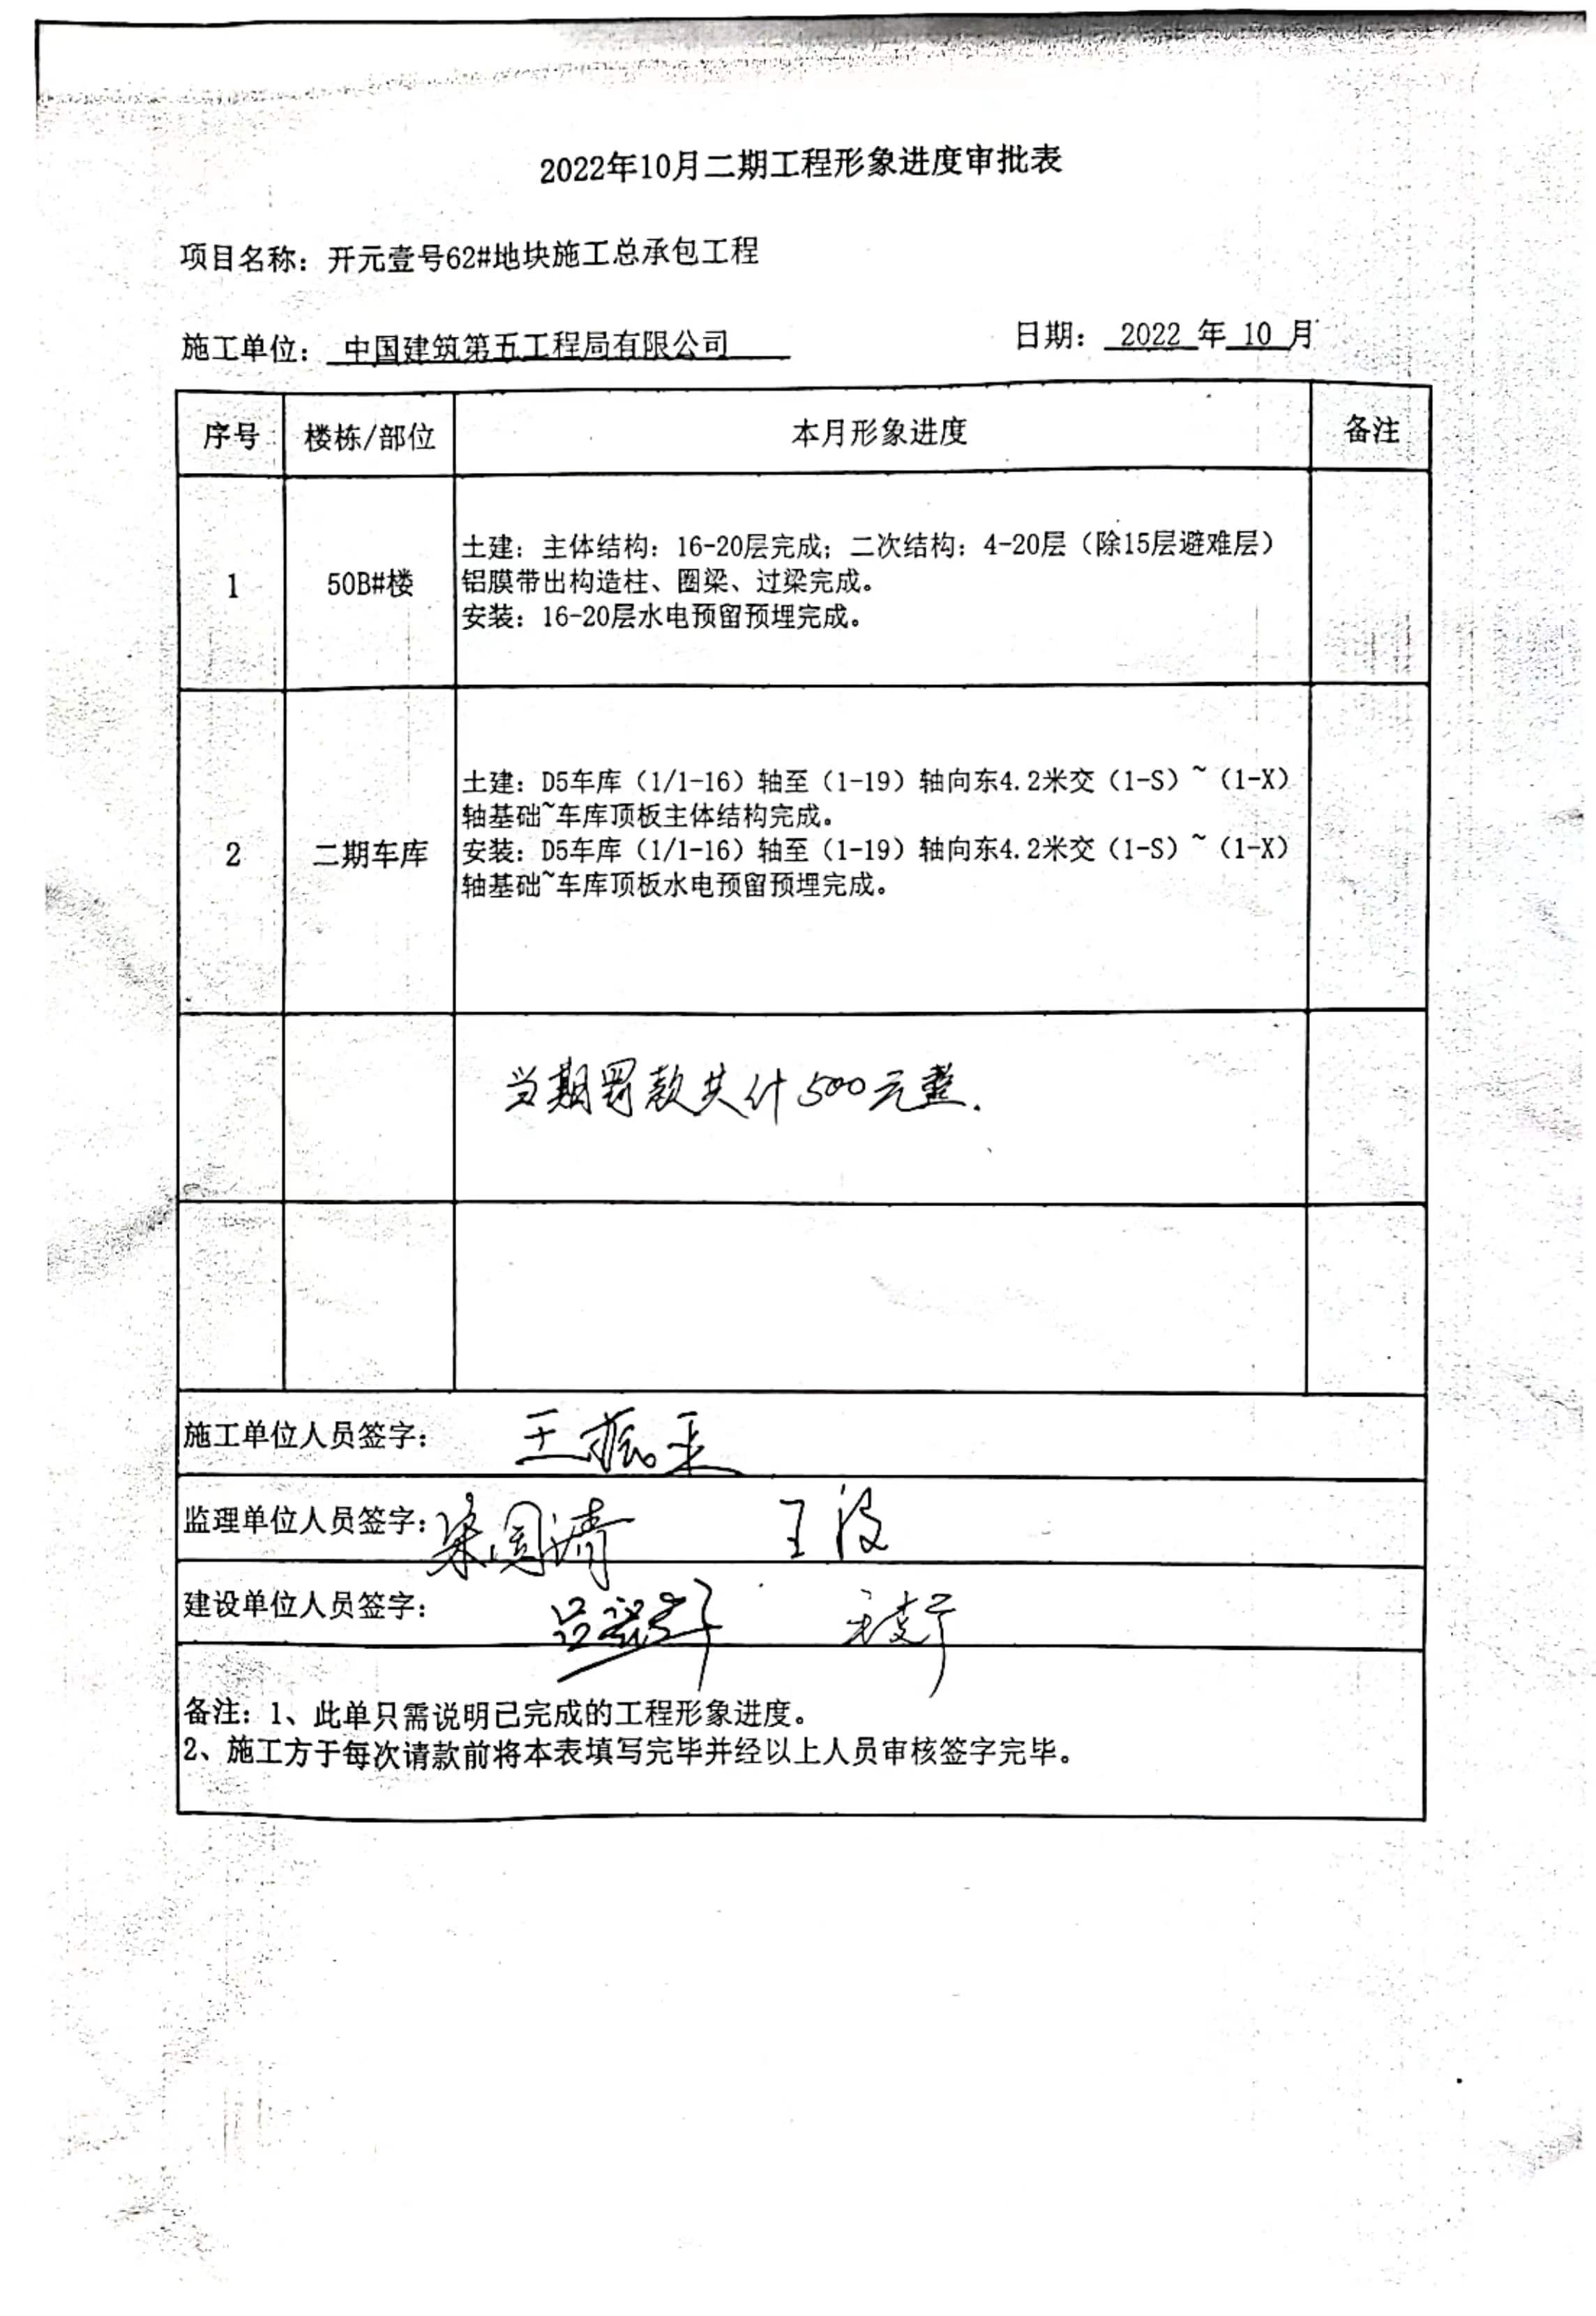 2022年10月二期工程形象进度审批表
项目名称：开元壹号62#地块施工总承包工程
施工单位：中国建筑第五工程局有限公司 日期：2022年10月
序号 楼栋/部位 本月形象进度 备注
1 50B#楼
土建：主体结构：16-20层完成；二次结构：4-20层（除15层避难层）
铝膜带出构造柱、圈梁、过梁完成。
安装：16-20层水电预留预埋完成。
2 二期车库
土建：D5车库（1/1-16）轴至（1-19）轴向东4.2米交（1-S）~（1-X）
轴基础~车库顶板主体结构完成。
安装：D5车库（1/1-16）轴至（1-19）轴向东4.2米交（1-S）~（1-X）
轴基础~车库顶板水电预留预埋完成。
当期罚款共计500元整.
施工单位人员签字：王振
监理单位人员签字： 王波
建设单位人员签字：
备注：1、此单只需说明已完成的工程形象进度。
2、施工方于每次请款前将本表填写完毕并经以上人员审核签字完毕。